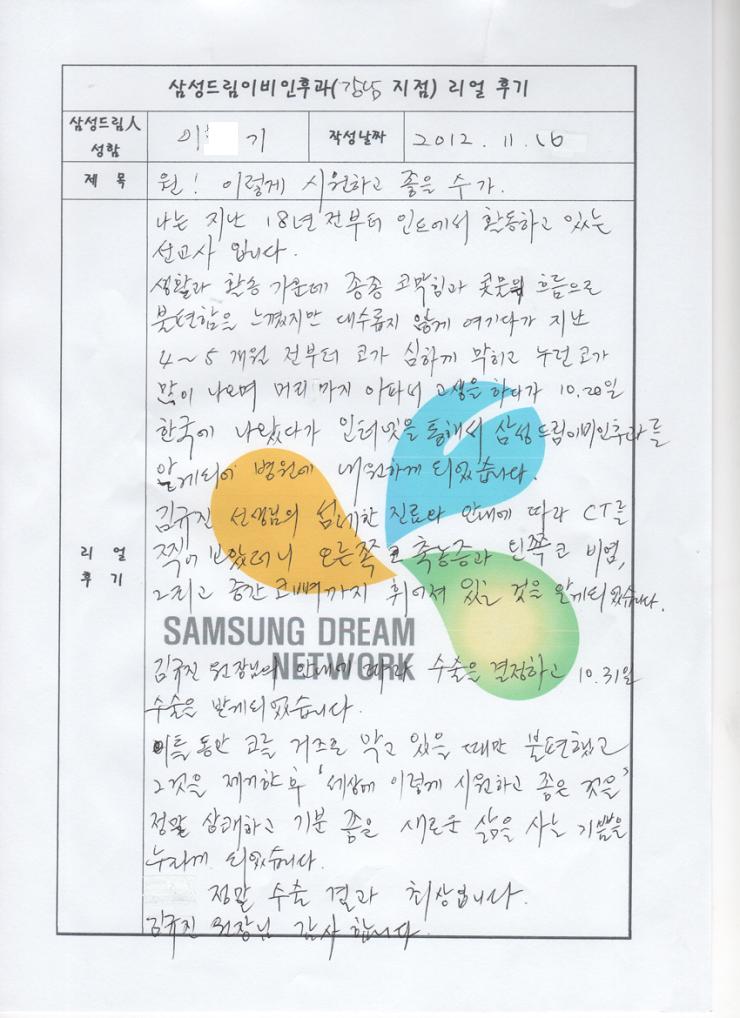 삼성드림이비인후과(강남 지점) 리얼 후기
삼성드림人 성함
이 기
작성날짜
2012. 11. 16
제 목
원! 이렇게 시원하고 좋을 수가.
리 얼 후 기
나는 지난 18년 전부터 인도에서 활동하고 있는
선교사 입니다.
생활과 활동 가운데 종종 코막힘과 콧물의 흐름으로
불편함을 느꼈지만 대수롭지 않게 여기다가 지난
4~5 개월 전부터 코가 심하게 막히고 누런코가
많이 나오며 머리까지 아파서 고생을 하다가 10.20일
한국에 나왔다가 인터넷을 통해서 삼성드림이비인후과를
알게되어 병원에 내원하게 되었습니다.
김규진 선생님의 섬세한 진료와 안내에 따라 CT를
찍어 보았더니 오른쪽 코 축농증과 왼쪽코 비염,
그리고 중간 코뼈까지 휘어져 있을 것을 알게되었습니다.
SAMSUNG DREAM
NETWORK
김규진 원장님의 안내에 따라 수술을 결정하고 10.31일
수술을 받게되었습니다.
이틀 동안 코를 거즈로 막고 있을 때만 불편했고
그것을 제거한 후 '세상에 이렇게 시원하고 좋은 것을'
정말 상쾌하고 기분 좋을 새로운 삶을 사는 기쁨을
누리게 되었습니다.
정말 수술 결과 최상입니다.
김규진 원장님 감사 합니다.